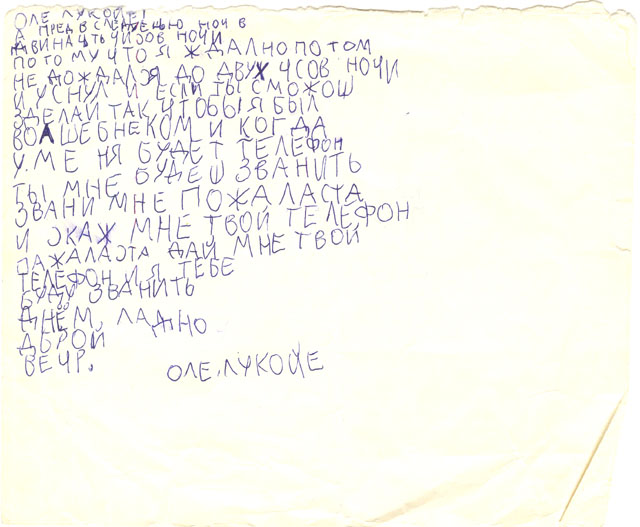 ОЛЕ ЛУКОЙЕ!
А ПРЕД В СЛЕДУЕЩЬЮ НОЧ В
ДВИНАЧТЬ ЧИЗОВ НОЧИ
ПОТОМУ ЧТО Я ЖДАЛ НО ПОТОМ
НЕ ДОЖДАЛСЯ ДО ДВУХ ЧСОВ НОЧИ
И УСНУЛ И ЕСЛИ ТЫ СМОЖОШ
ЗДЕЛАЙ ТАК ЧТОБЫ Я БЫЛ
ВОЛШЕБНЕКОМ И КОГДА
У МЕНЯ БУДЕТ ТЕЛЕФОН
ТЫ МНЕ БУДЕШ ЗВАНИТЬ
ЗВАНИ МНЕ ПОЖАЛАСТА
И СКАЖ МНЕ ТВОЙ ТЕЛЕФОН
ПАЖАЛАСТА ДАЙ МНЕ ТВОЙ
ТЕЛЕФОН И Я ТЕБЕ
БУДУ ЗВАНИТЬ
ДНЁМ, ЛАДНО
ДБРОЙ
ВЕЧР. ОЛЕ, ЛУКОЙЕ